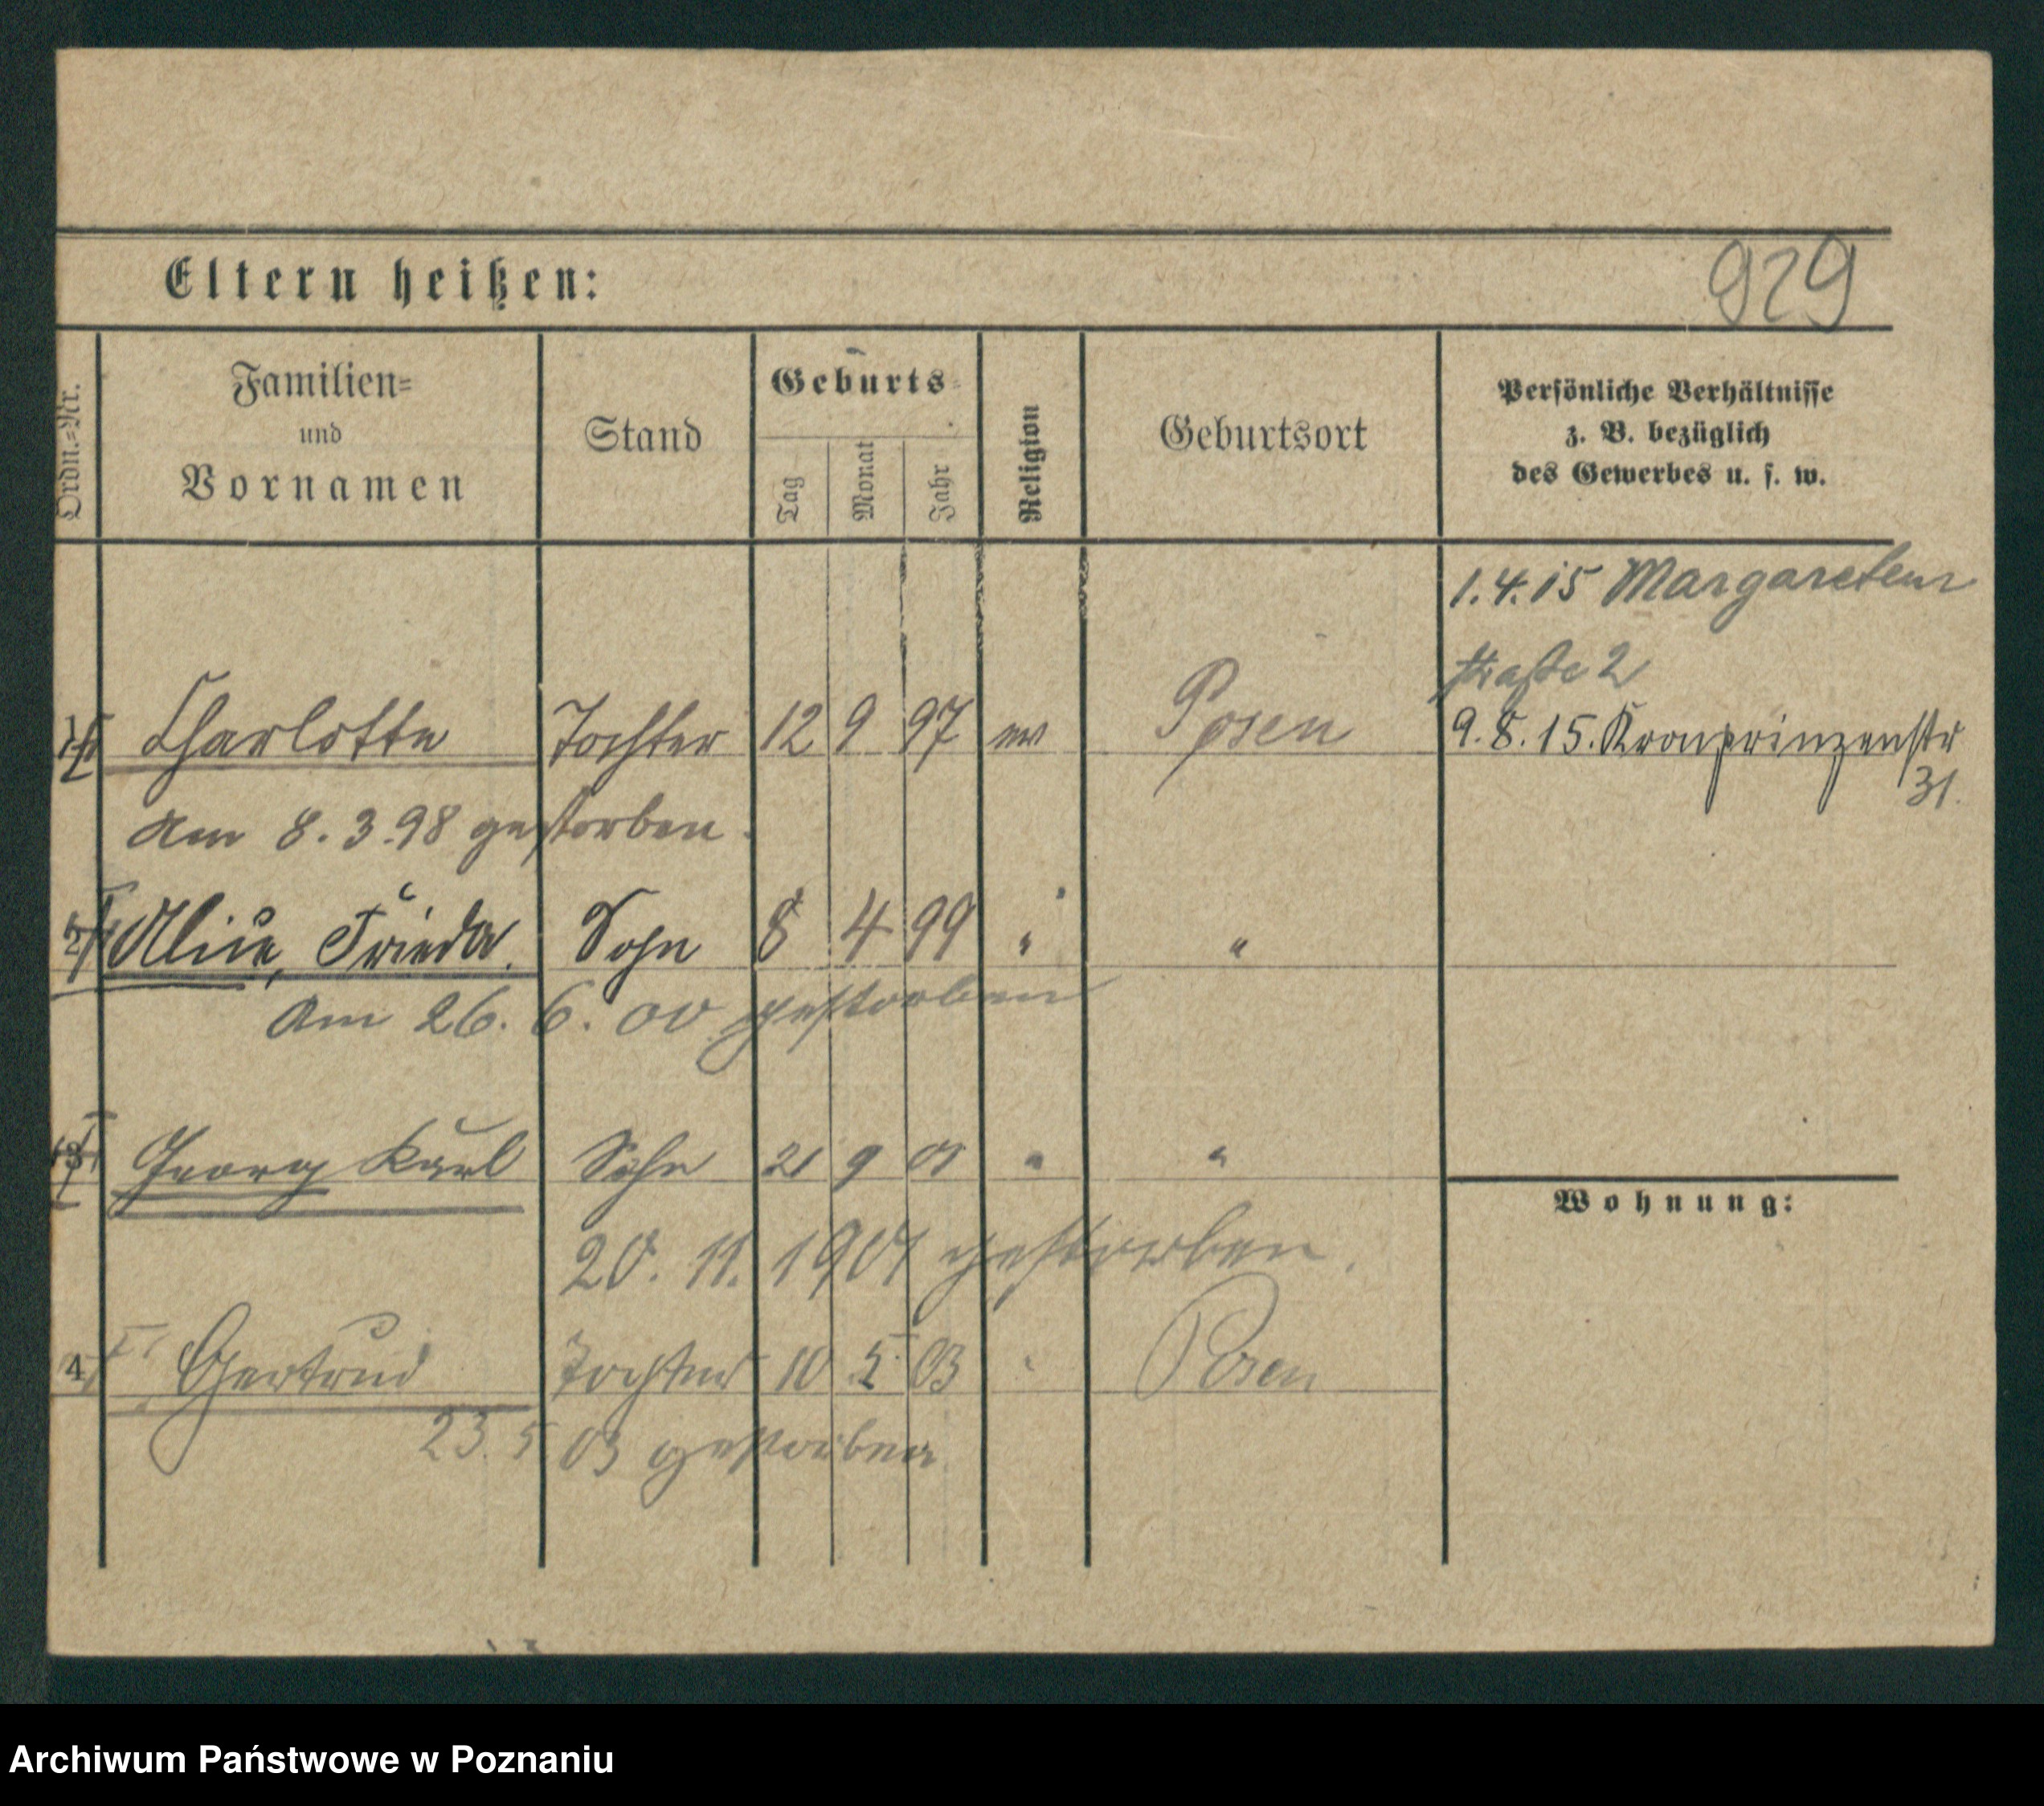 Eltern heißen:
929
Ordn.=Nr.
Familien=
und
Vornamen
Stand
Geburts=
Tag
Monat
Jahr
Religion
Geburtsort
Persönliche Verhältnisse
z. B. bezüglich
des Gewerbes u. s. w.
1.4.15 Margareten
straße 2
1 Charlotte Tochter 12 9 97 ev Posen
9.8.15. Kronprinzenstr
31.
am 8.3.98 gestorben.
2 Frieda. Sohn 8 4 99 " "
am 26.6.00 gestorben
3 Georg Karl Sohn 21 9 01 " "
Wohnung:
20. 11. 1901 gestorben.
4 Gertrud Tochter 10 5 03 " Posen
23.5 03 gestorben
Archiwum Państwowe w Poznaniu